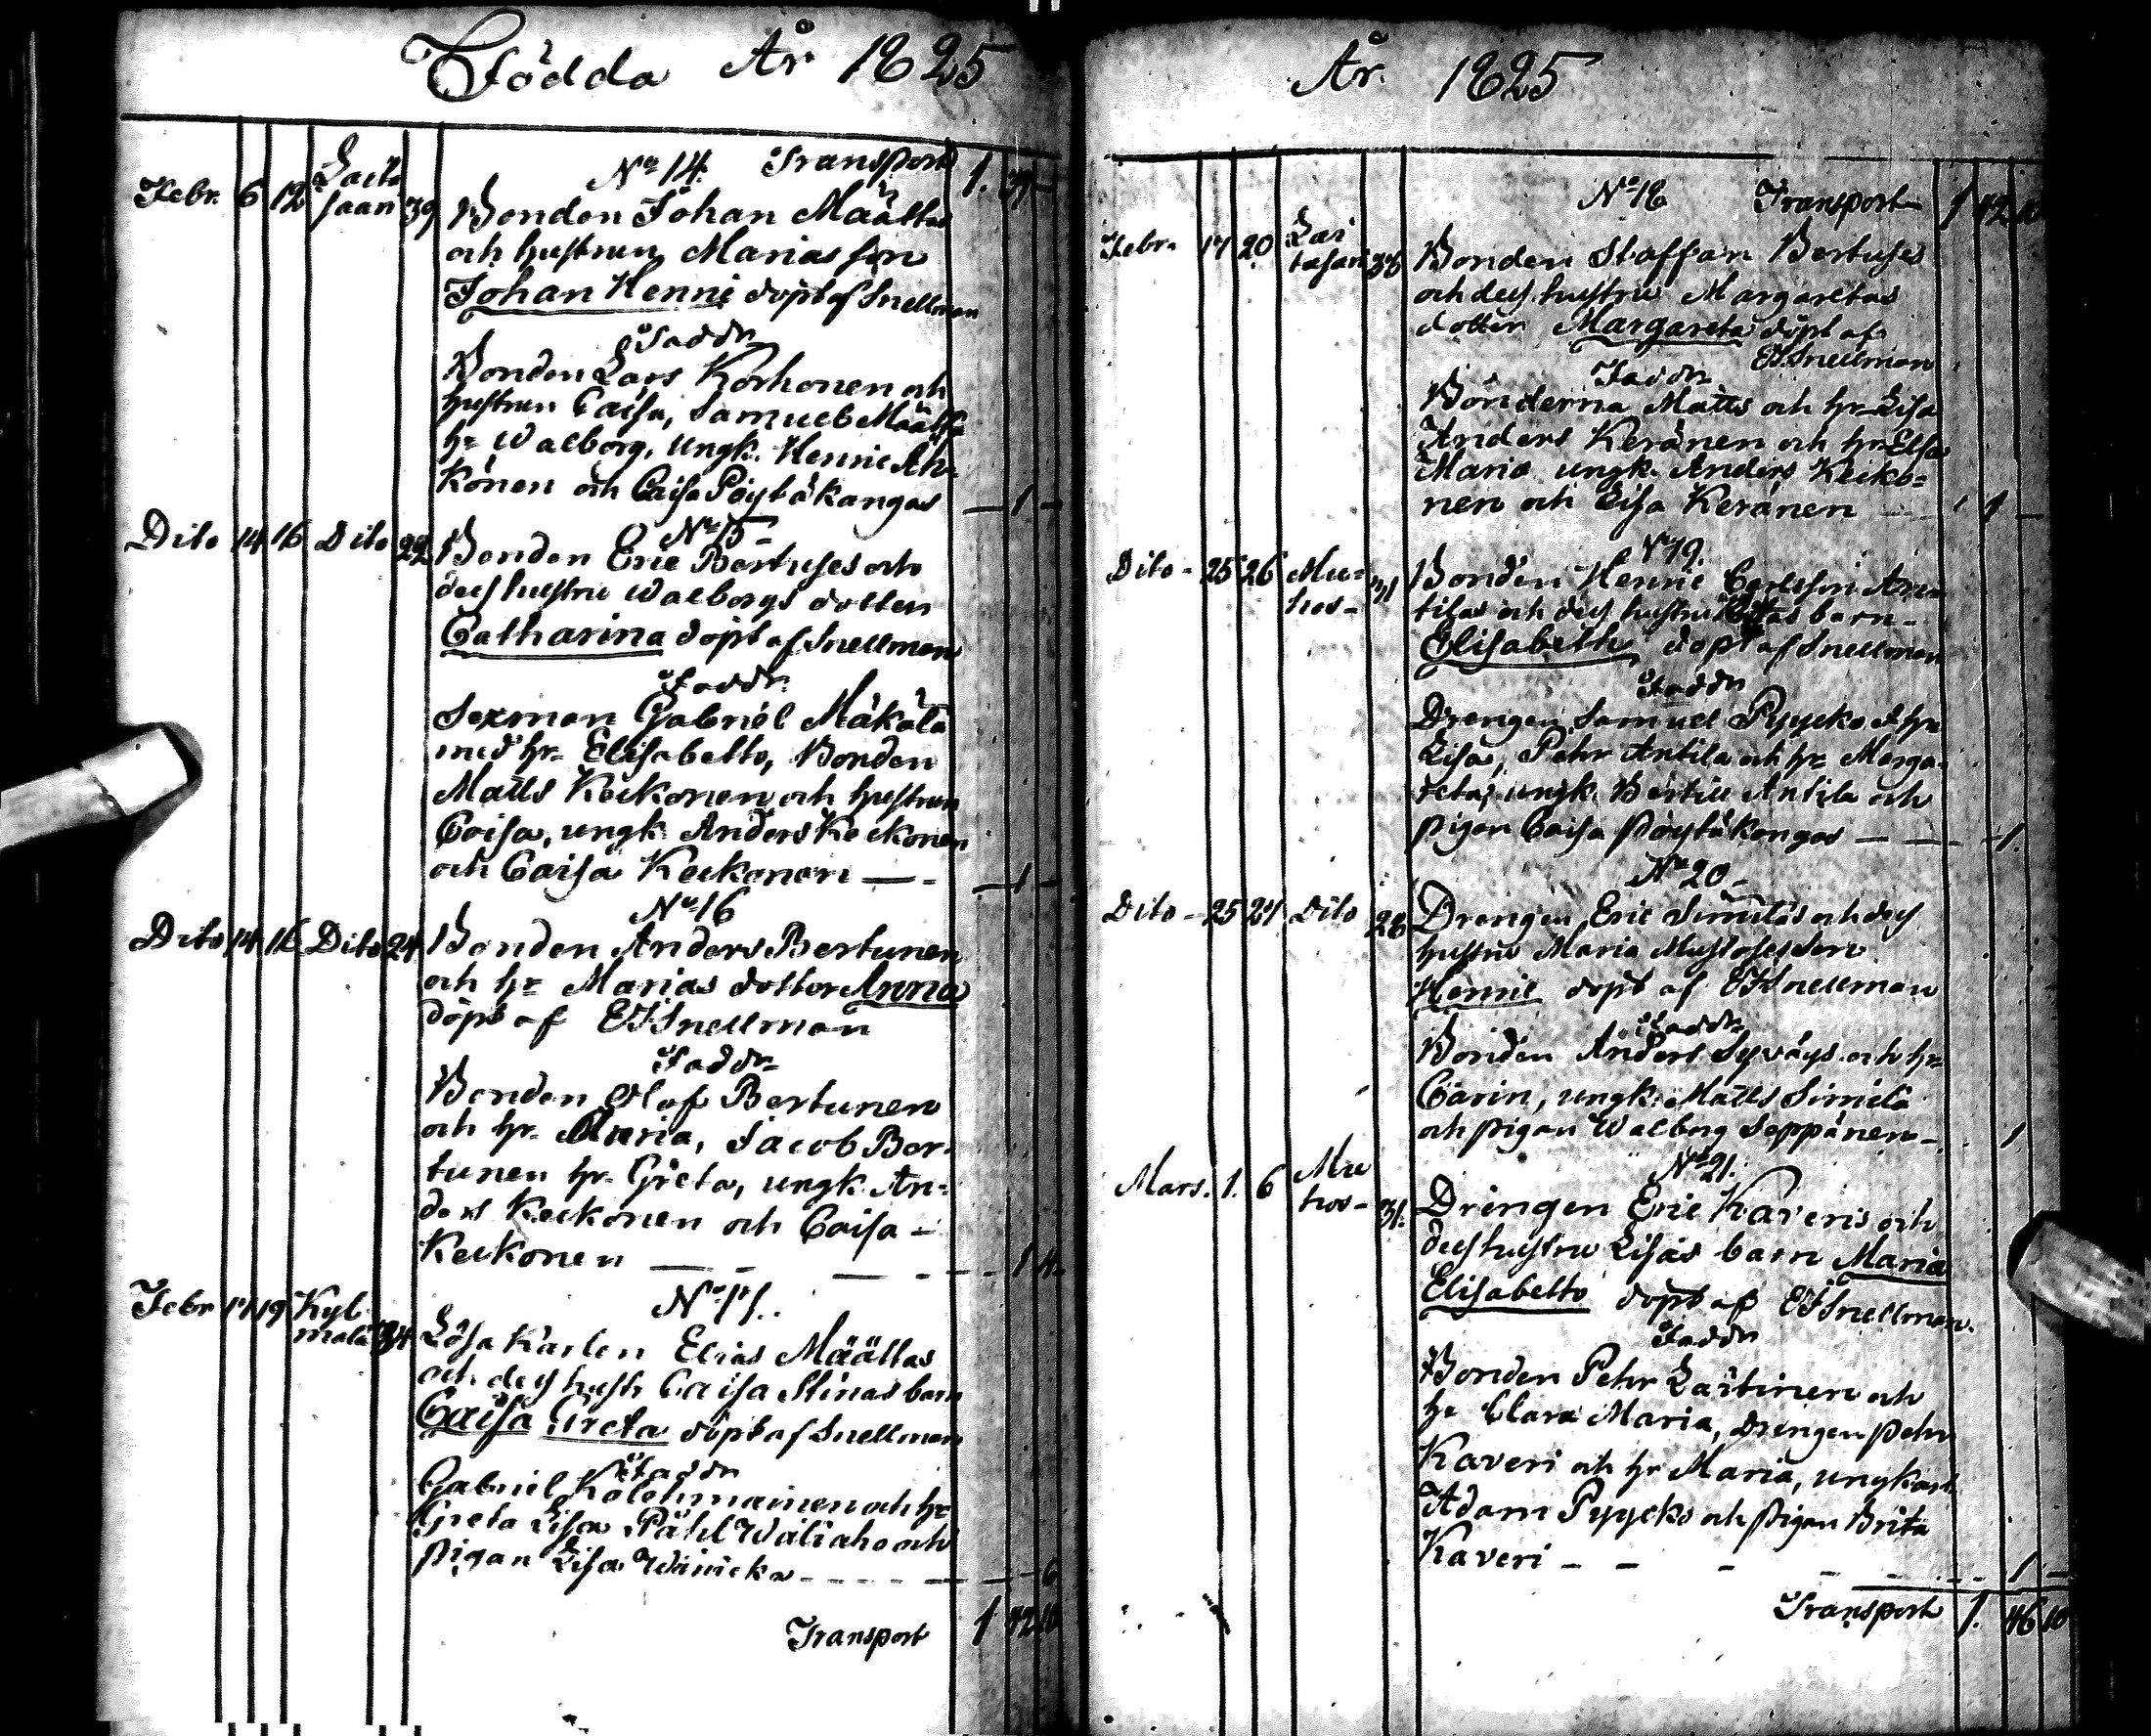 Födda År 1825
No 14. Transport 1. 39 -
Febr. 6 12 Laito
saari 39 Bonden Johan Määttas
och hustrun Marias son
Johan Henric döpt af Snellman
Faddr
Bonden Lars Korhonen och
hustrun Caisa, Samuel Määttä
hr Walborg, ungk. Henric Ah=
könen och Caisa Pöytäkangas — 1 —
No 15 -
Dito 14 16 Dito 22 Bonden Eric Bertuses och
dess hustru Walborgs dotter
Catharina döpt af Snellman
Faddr
Sexman Gabriel Mäkälä
med hr Elisabetto, Bonden
Matts Keckonen och hustrun
Caisa, ungk Anders Keckonen
och Caisa Keckonen — — 1 —
No 16
Dito 14 16 Dito 24 Bonden Anders Bertunen
och hr Marias dotter Anna
döpt af EJSnellman
Faddr
Bonden Olof Bertunen
och hr Maria, Jacob Ber-
tunen hr Greta, ungk. An=
ders Keckonen och Caisa -
Keckonen — — 1 4.
No 17.
Febr 17 19 Kyl
mälä 34 Lösa Karlen Elias Määttas
och dess hustr Caisa Stinas barn
Caisa Greta döpt af Snellman
Faddr
Gabriel Kolehmainen och hr
Greta Lisa Påhl Wäliaho och
pigan Lisa - - - - 6
Transport 1 42 10
År. 1825
No 18 Transport 1 42 10
Febr. 17 20 Lai
tasari 38 Bonden Staffan Bertuses
och dess hustru Margaretas
dotter Margareta döpt af
EJSnellman
Faddr
Bönderna Matts och hr Lisa
Anders Keränen och hr Elsa
Maria ungk. Anders Kecko=
nen och Lisa Keränen 1 —
No 19.
Dito - 25 26 Mu=
hos - 31 Bonden Henric Carlsson An=
tilas och dess hustru barn -
Elisabeth döpt af Snellman
Faddr
Drengen Samuel Pyycko & hr
Lisa, Pehr Antila och hr Marga-
reta, ungk. Bertill Antila och
pigan Caisa Pöytäkangas — — 1.
No 20 -
Dito - 25 27 Dito 28 Drengen Eric Similäs och dess
hustru Maria son
Henric döpt af EJSnellman
Faddr
Bonden Anders Syväys och hr
Carin, ungk. Matts Similä
och pigan Walborg Seppänen - 1
No 21.
Mars. 1. 6 Mu
hos - 31. Drengen Eric Kaveris och
dess hustru Lisas barn Maria
Elisabetto döpt af EJSnellman.
Faddr
Bonden Pehr Laitinen och
hr Clara Maria, drengen Pehr
Kaveri och hr Maria, ungkarl
Adam Pyycko och pigan Brita
Kaveri - - - 1 —
Transport 1. 46 10